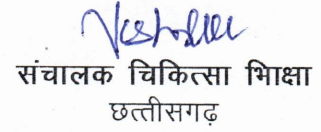 संचालक चिकित्सा भिाक्षा
छत्तीसगढ़